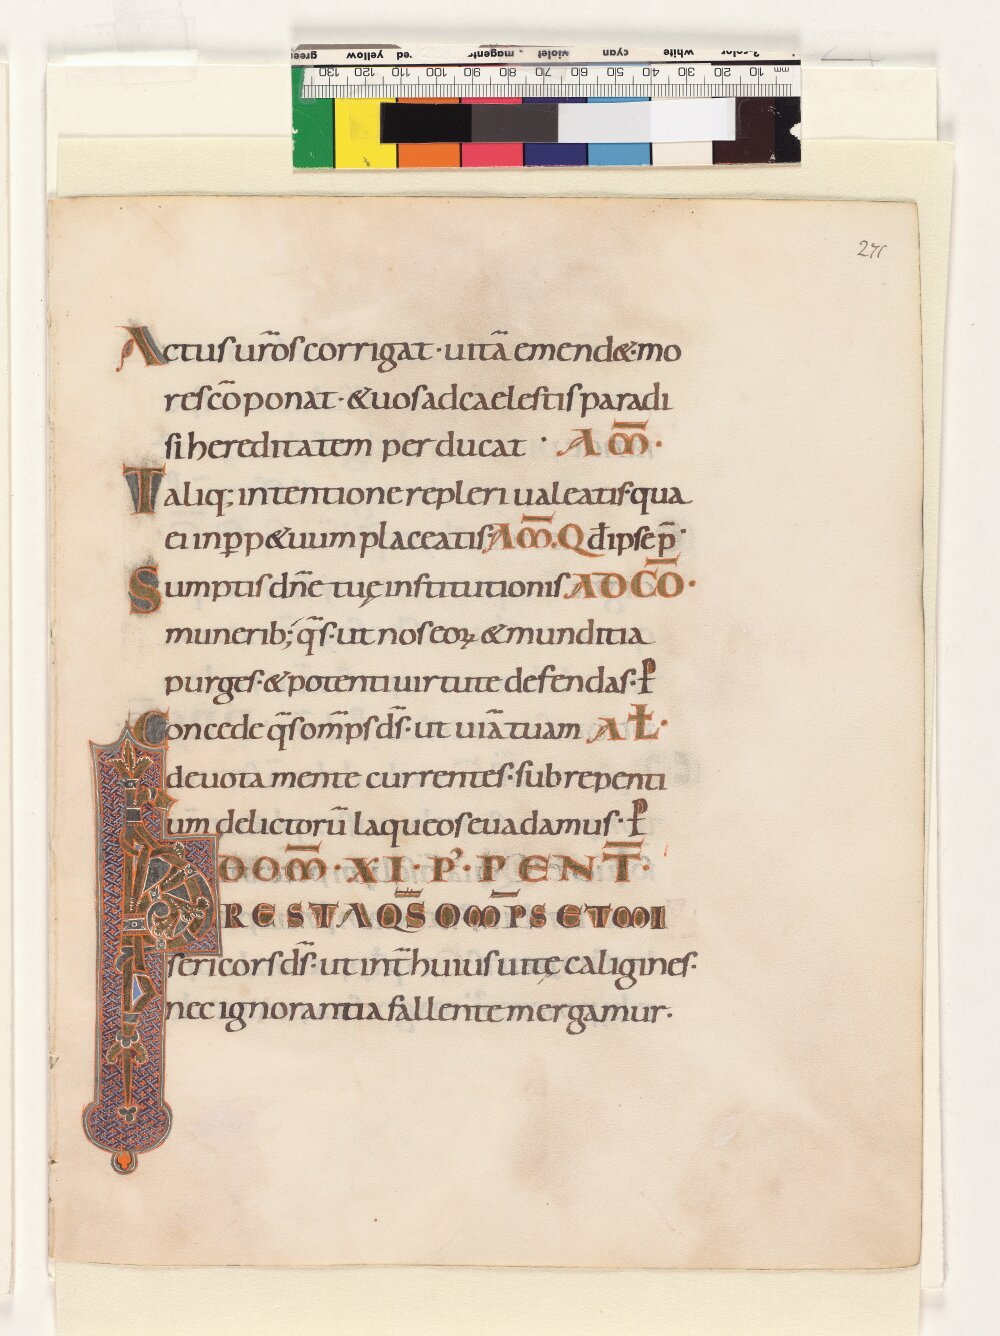 green red yellow red magenta violet cyan white 3-color
130 120 110 100 90 80 70 60 50 40 30 20 10 mm
271
Actus ur̄os corrigat · uitā emend&· mo
res cōponat · & uos ad caelestis paradi
si hereditatem perducat · AM̄ ·
Taliq; intentione repleri ualeatis· qua
ei inp̲p&uum placeatis· AM̄. Qđ ipse p̄·
Sumptis dn̄e tuę institutionis AD CŌ·
munerib; q̄s· ut nos eoꝝ & munditia
purges· & potenti uirtute defendas· ꝑ
Concede q̄s om̄ps d̄s· ut uiā tuam AŁ·
deuota mente currentes· subrepenti
um delictorū laqueos euadamus· ꝑ
DOM̄· XI· P'· PENT̄
PRESTA QS̄ OM̄PS ET MI
sericors d̄s· ut int̄ huius uitę caligines·
nec ignorantia fallente mergamur·